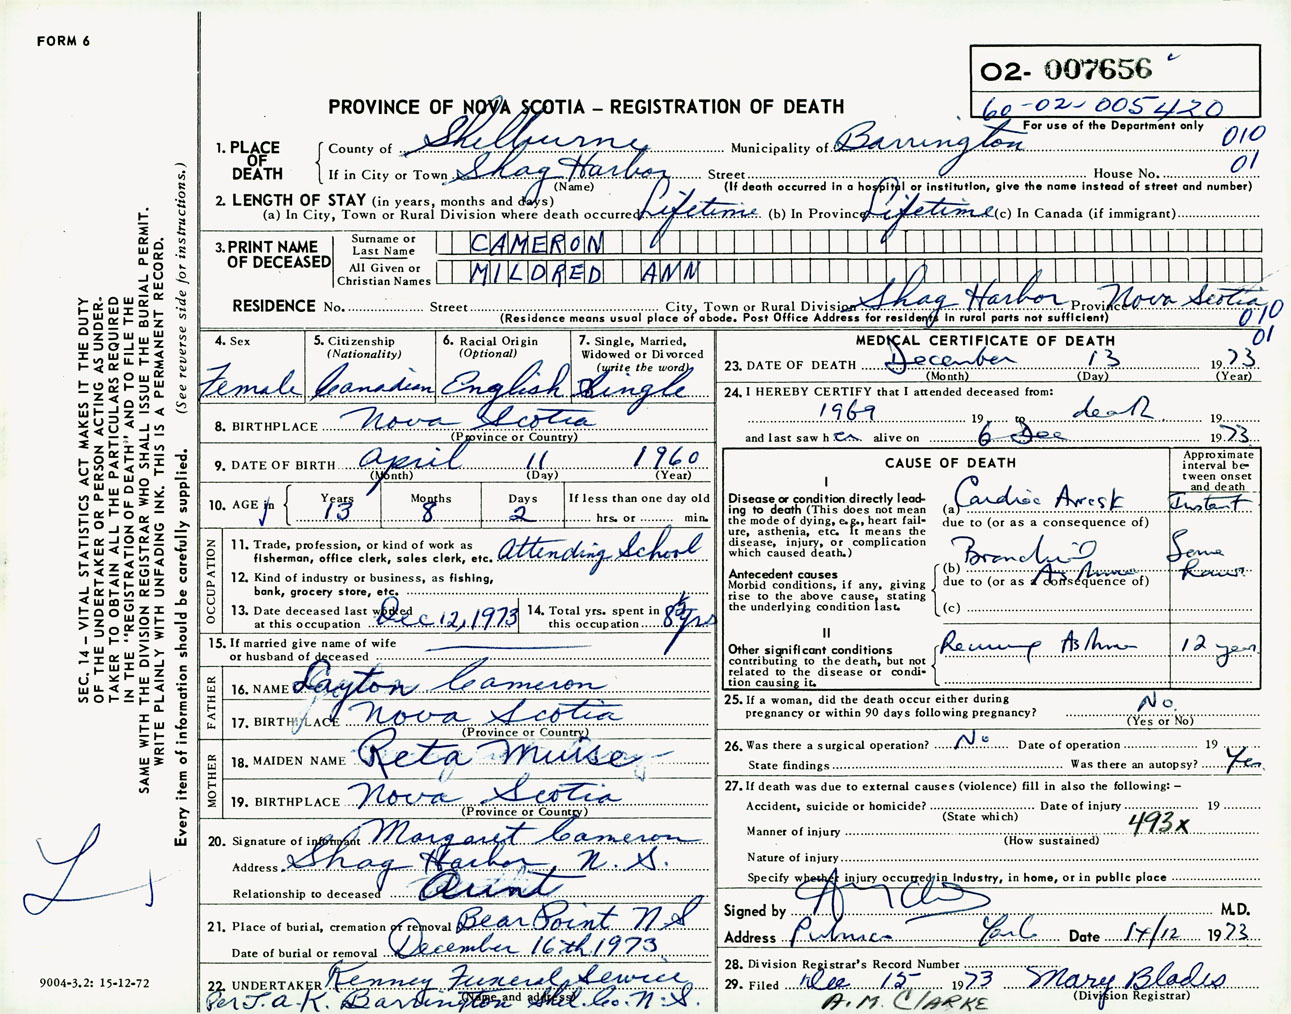 FORM 6
O2- 007656
60-02-005420
For use of the Department only
PROVINCE OF NOVA SCOTIA – REGISTRATION OF DEATH
010
01
1. PLACE OF DEATH
County of Shelburne Municipality of Barrington
If in City or Town Shag Harbor Street House No.
(Name) (If death occurred in a hospital or institution, give the name instead of street and number)
2. LENGTH OF STAY (in years, months and days)
(a) In City, Town or Rural Division where death occurred Lifetime (b) In Province Lifetime (c) In Canada (if immigrant)
3. PRINT NAME OF DECEASED
Surname or Last Name CAMERON
All Given or Christian Names MILDRED ANN
RESIDENCE No. Street City, Town or Rural Division Shag Harbor Province Nova Scotia
(Residence means usual place of abode. Post Office Address for residents in rural parts not sufficient)
010
01
4. Sex
Female
5. Citizenship (Nationality)
Canadian
6. Racial Origin (Optional)
English
7. Single, Married, Widowed or Divorced (write the word)
Single
8. BIRTHPLACE Nova Scotia
(Province or Country)
9. DATE OF BIRTH April 11 1960
(Month) (Day) (Year)
10. AGE in Years 13 Months 8 Days 2
If less than one day old
hrs. or min.
OCCUPATION
11. Trade, profession, or kind of work as
fisherman, office clerk, sales clerk, etc. Attending School
12. Kind of industry or business, as fishing,
bank, grocery store, etc.
13. Date deceased last worked
at this occupation Dec 12, 1973
14. Total yrs. spent in
this occupation 8 yrs
15. If married give name of wife
or husband of deceased
FATHER
16. NAME Layton Cameron
17. BIRTHPLACE Nova Scotia
(Province or Country)
MOTHER
18. MAIDEN NAME Reta Muise
19. BIRTHPLACE Nova Scotia
(Province or Country)
20. Signature of informant Margaret Cameron
Address Shag Harbor, N. S.
Relationship to deceased Aunt
21. Place of burial, cremation or removal Bear Point N S
Date of burial or removal December 16th 1973
22. UNDERTAKER Kenney Funeral Service
(Name and address)
Per J. A. K. Barrington Shel. Co. N. S.
MEDICAL CERTIFICATE OF DEATH
23. DATE OF DEATH December 13 1973
(Month) (Day) (Year)
24. I HEREBY CERTIFY that I attended deceased from:
1969 19 to death 19
and last saw her alive on 6 Dec 1973
CAUSE OF DEATH
Approximate interval between onset and death
I
Disease or condition directly leading to death (This does not mean the mode of dying, e.g., heart failure, asthenia, etc. It means the disease, injury, or complication which caused death.)
(a) Cardiac Arrest Instant
due to (or as a consequence of)
Antecedent causes
Morbid conditions, if any, giving rise to the above cause, stating the underlying condition last.
(b) Bronchial Asthma Some hours
due to (or as a consequence of)
(c)
II
Other significant conditions
contributing to the death, but not related to the disease or condition causing it.
Asthma 12 years
25. If a woman, did the death occur either during
pregnancy or within 90 days following pregnancy? No.
(Yes or No)
26. Was there a surgical operation? No Date of operation 19
State findings Was there an autopsy? Yes
27. If death was due to external causes (violence) fill in also the following: –
Accident, suicide or homicide? Date of injury 19
(State which)
Manner of injury 493x
(How sustained)
Nature of injury
Specify whether injury occurred in Industry, in home, or in public place
Signed by M.D.
Address Pubnico Date 14/12 1973
28. Division Registrar's Record Number
29. Filed Dec 15 1973 Mary Blades
(Division Registrar)
A. M. CLARKE
SEC. 14 – VITAL STATISTICS ACT MAKES IT THE DUTY
OF THE UNDERTAKER OR PERSON ACTING AS UNDER-
TAKER TO OBTAIN ALL THE PARTICULARS REQUIRED
IN THE "REGISTRATION OF DEATH" AND TO FILE THE
SAME WITH THE DIVISION REGISTRAR WHO SHALL ISSUE THE BURIAL PERMIT.
WRITE PLAINLY WITH UNFADING INK. THIS IS A PERMANENT RECORD.
Every item of information should be carefully supplied. (See reverse side for instructions.)
9004-3.2: 15-12-72